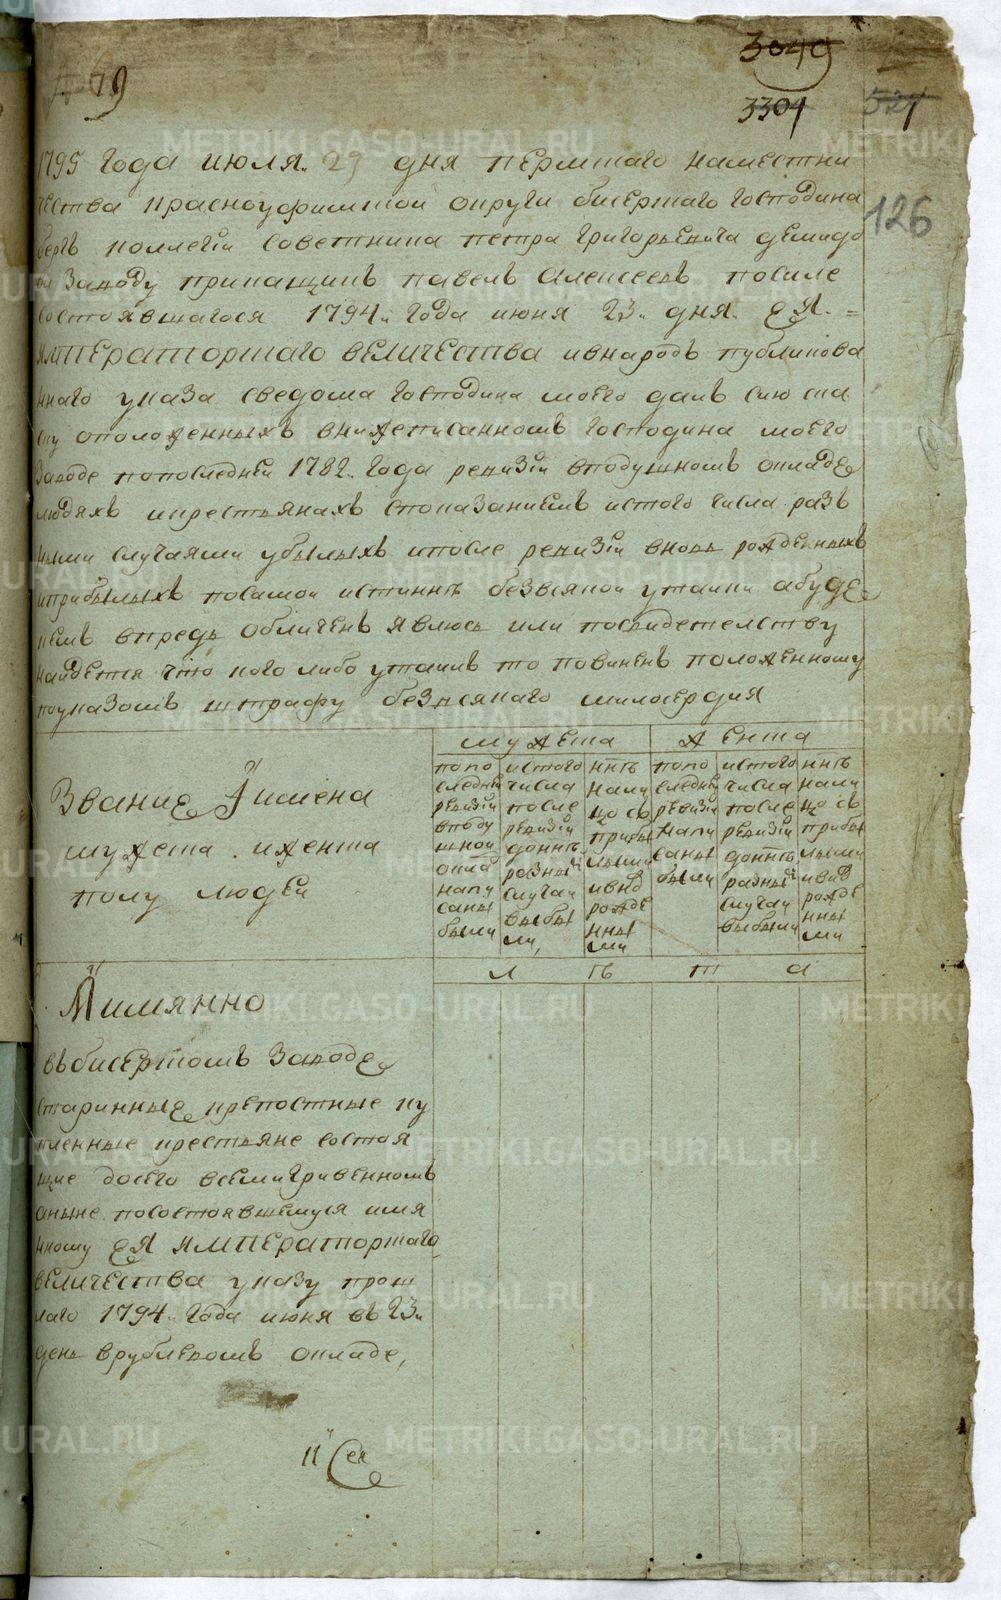 79
3049
3304
521
126
1795 года июля 29 дня пермскаго наместни
чества красноуфимской округи бисерскаго господина
берг коллегiи советника петра григорьевича демидо
ва заводу прикащикъ павелъ алексеевъ посиле
состоявшагося 1794. года июня 23. дня. ея. =
императорскаго величества ивнародъ публикова
ннаго указа сведома господина моего далъ сию ска
ску оположенныхъ внижеписанномъ господина моего
заводе попоследней 1782. года ревизiи вподушномъ окладе
людяхъ икрестьянахъ споказаниемъ истого числа разъ
ными случаями убылыхъ ипосле ревизiи вновь рожденныхъ
иприбылыхъ посамой истиннѣ безвсякой утайки абуде
чемъ впредь обличенъ явлюсь или посвидетелству
найдется что кого либо утаилъ то повиненъ положенному
поуказомъ штрафу безвсякаго милосердия
мужеска
женска
Звание Iимена
мужеска иженска
полу людей
попо
следней
ревизiи
вподу
шной
окла
напи
саны
были
истого
числа
после
ревизiи
доннѣ
разный
случаи
выбы
ли,
ннѣ
нали
цо съ
прибы
лыми
ивнв
рожде
нны
ми
попо
следней
ревизiи
напи
саны
были
истого
числа
после
ревизiи
доннѣ
разный
случаи
выбыли
ннѣ
нали
цо съ
прибы
лыми
ивнв
рожде
нны
ми
л ѣ т а
Йимянно
въбисерскомъ заводе
старинные крепостные ку
пленные крестьяне состоя
щие досего всемигривенномъ
аныне посостоявшемуся имя
нному ея императорскаго
величества указу прош
лаго 1794. года июня въ 23й
день врублевомъ окладе,